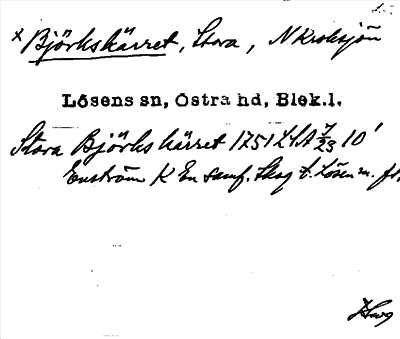 x Björkskärret, Stora, N Kroksjön
Lösens sn, Östra hd, Blek.l.
Stora Björkskärret 1751 LSA 7/23 10'
Enström K En saml. Skog t. Lösen m. fl.